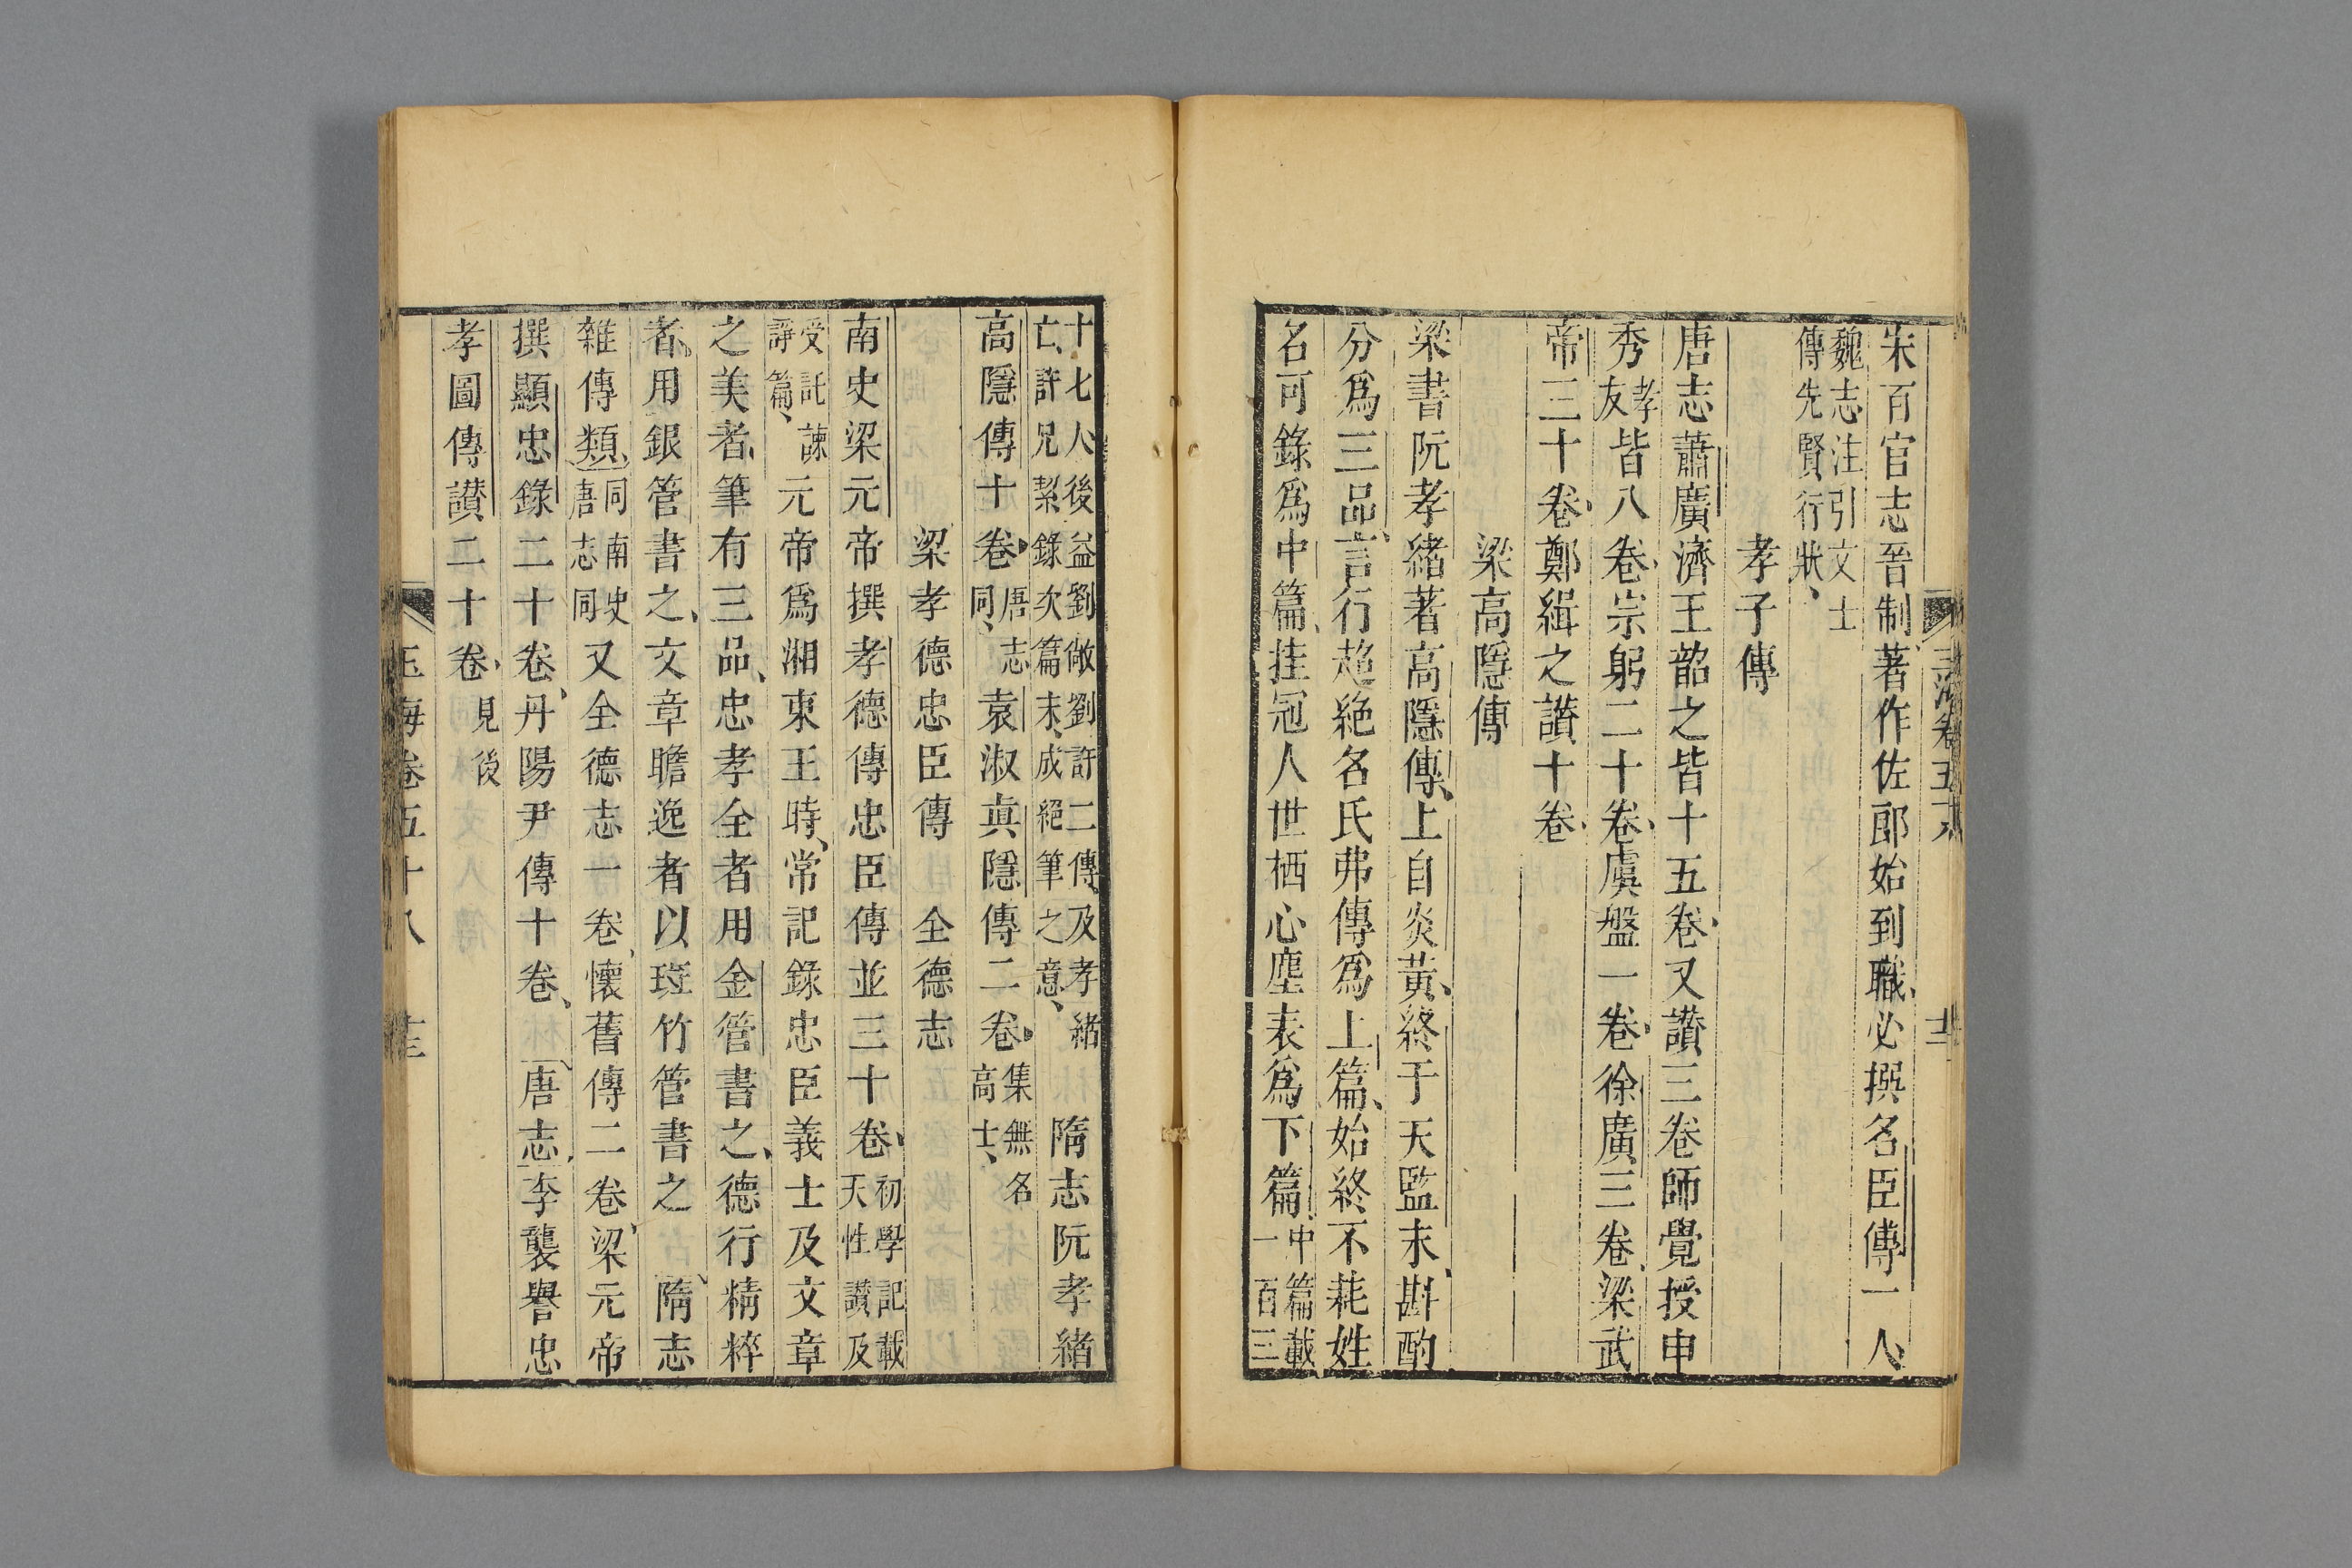 宋百官志晉制著作佐郎始到職必撰名臣傳一人
魏志注引文士
傳先賢行狀
孝子傳
唐志蕭廣濟王韶之皆十五卷又讃三卷師覺授申
秀孝友皆八卷宗躬二十卷虞盤一卷徐廣三卷梁武
帝三十卷鄭緝之讃十卷
梁高隱傳
梁書阮孝緒著高隱傳上自炎黃終于天監末斟酌
分爲三品言行超絶名氏弗傳爲上篇始終不耗姓
名可錄爲中篇挂冠人世栖心塵表爲下篇中篇載一百三
十七人後益劉敞劉訏二傳及孝緒
亡許兄絜錄次篇末成絕筆之意
隋志阮孝緒
高隱傳十卷唐志同袁淑真隱傳二卷集無名高士
梁孝德忠臣傳　全德志
南史梁元帝撰孝德傳忠臣傳並三十卷初學記載天性讃及
受託諫諍篇元帝爲湘東王時常記錄忠臣義士及文章
之美者筆有三品忠孝全者用金管書之德行精粹
者用銀管書之文章贍逸者以斑竹管書之　隋志
雜傳類同南史唐志同又全德志一卷懷舊傳二卷梁元帝
撰顯忠錄二十卷丹陽尹傳十卷　唐志李襲譽忠
孝圖傳讃二十卷見後
玉海卷五十八　十三